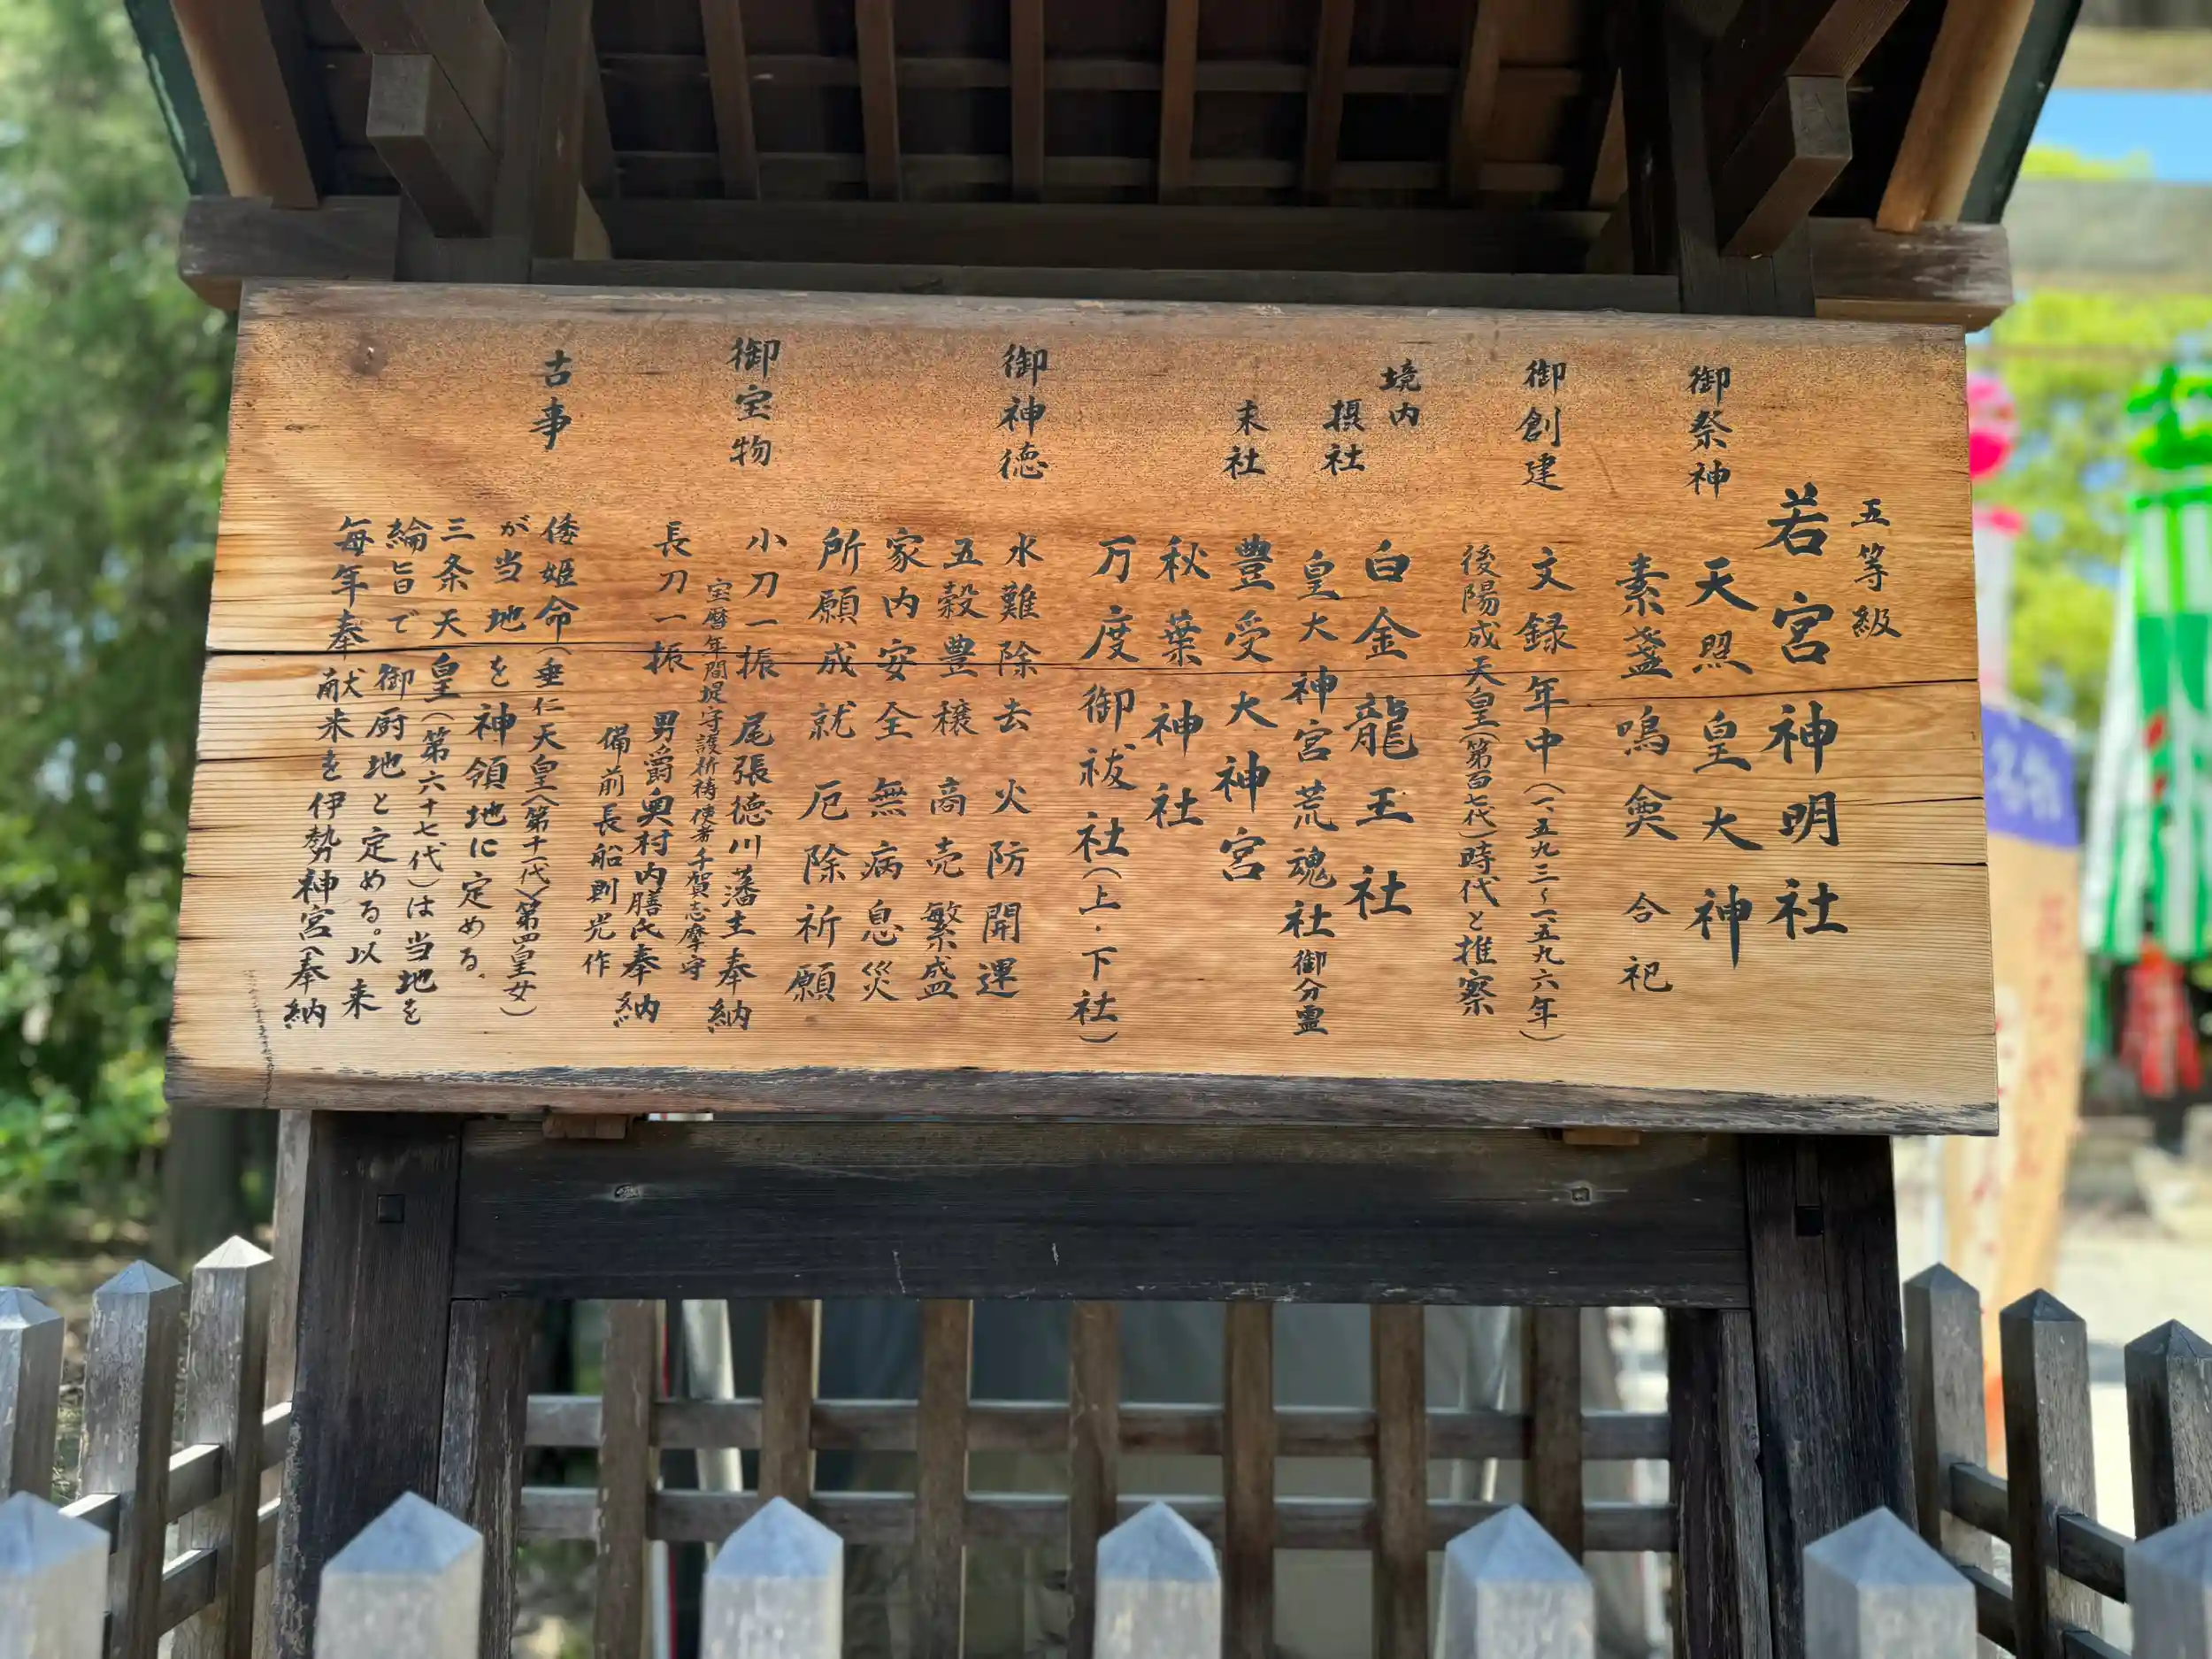 五等級
若宮神明社
御祭神
天照皇大神
素盞鳴尊 合祀
御創建
文録年中(一五九三~一五九六年)
後陽成天皇(第百七代)時代と推察
境内
摂社
白金龍王社
皇大神宮荒魂社 御分霊
末社
豊受大神宮
秋葉神社
万度御祓社(上・下社)
御神徳
水難除去 火防開運
五穀豊穣 商売繁盛
家内安全 無病息災
所願成就 厄除祈願
御宝物
小刀一振 尾張徳川藩主奉納
宝暦年間堤守護祈祷使者千賀志摩守
長刀一振 男爵奥村内膳氏奉納
備前長船則光作
古事
倭姫命(垂仁天皇〈第十一代〉第四皇女)
が当地を神領地に定める。
三条天皇(第六十七代)は当地を
綸旨で御厨地と定める。以来
毎年奉献米を伊勢神宮へ奉納